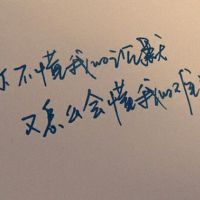 不懂我的沉默
又怎么会懂我的难